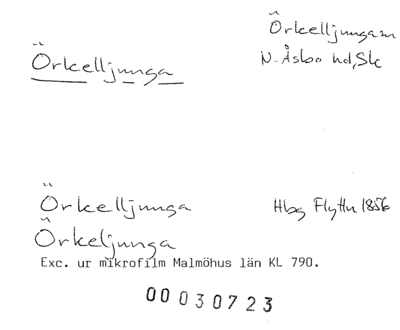 Örkelljunga
Örkelljunga sn
N. Åsbo hd, Sk
Örkelljunga Hbg Flyttn 1856
Örkeljunga
Exc. ur mikrofilm Malmöhus län KL 790.
00 030723